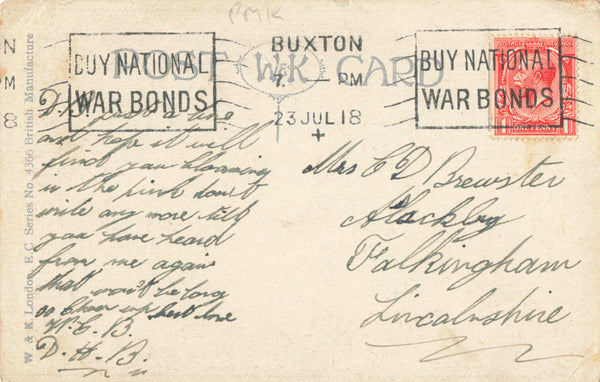 PMK
N
PM
8
BUY NATIONAL
WAR BONDS
BUXTON
7. PM
23 JUL 18
BUY NATIONAL
WAR BONDS
POST W&K CARD
ONE PENNY
W. & K. London, E.C. Series No. 4366 British Manufacture
just a line
and hope it will
find you blooming
in the pink don't
write any more till
you have heard
from me again
that won't be long
so cheer up best love
W. E. B.
D. H. B.
Mrs C D Brewster
Alackby
Falkingham
Lincolnshire